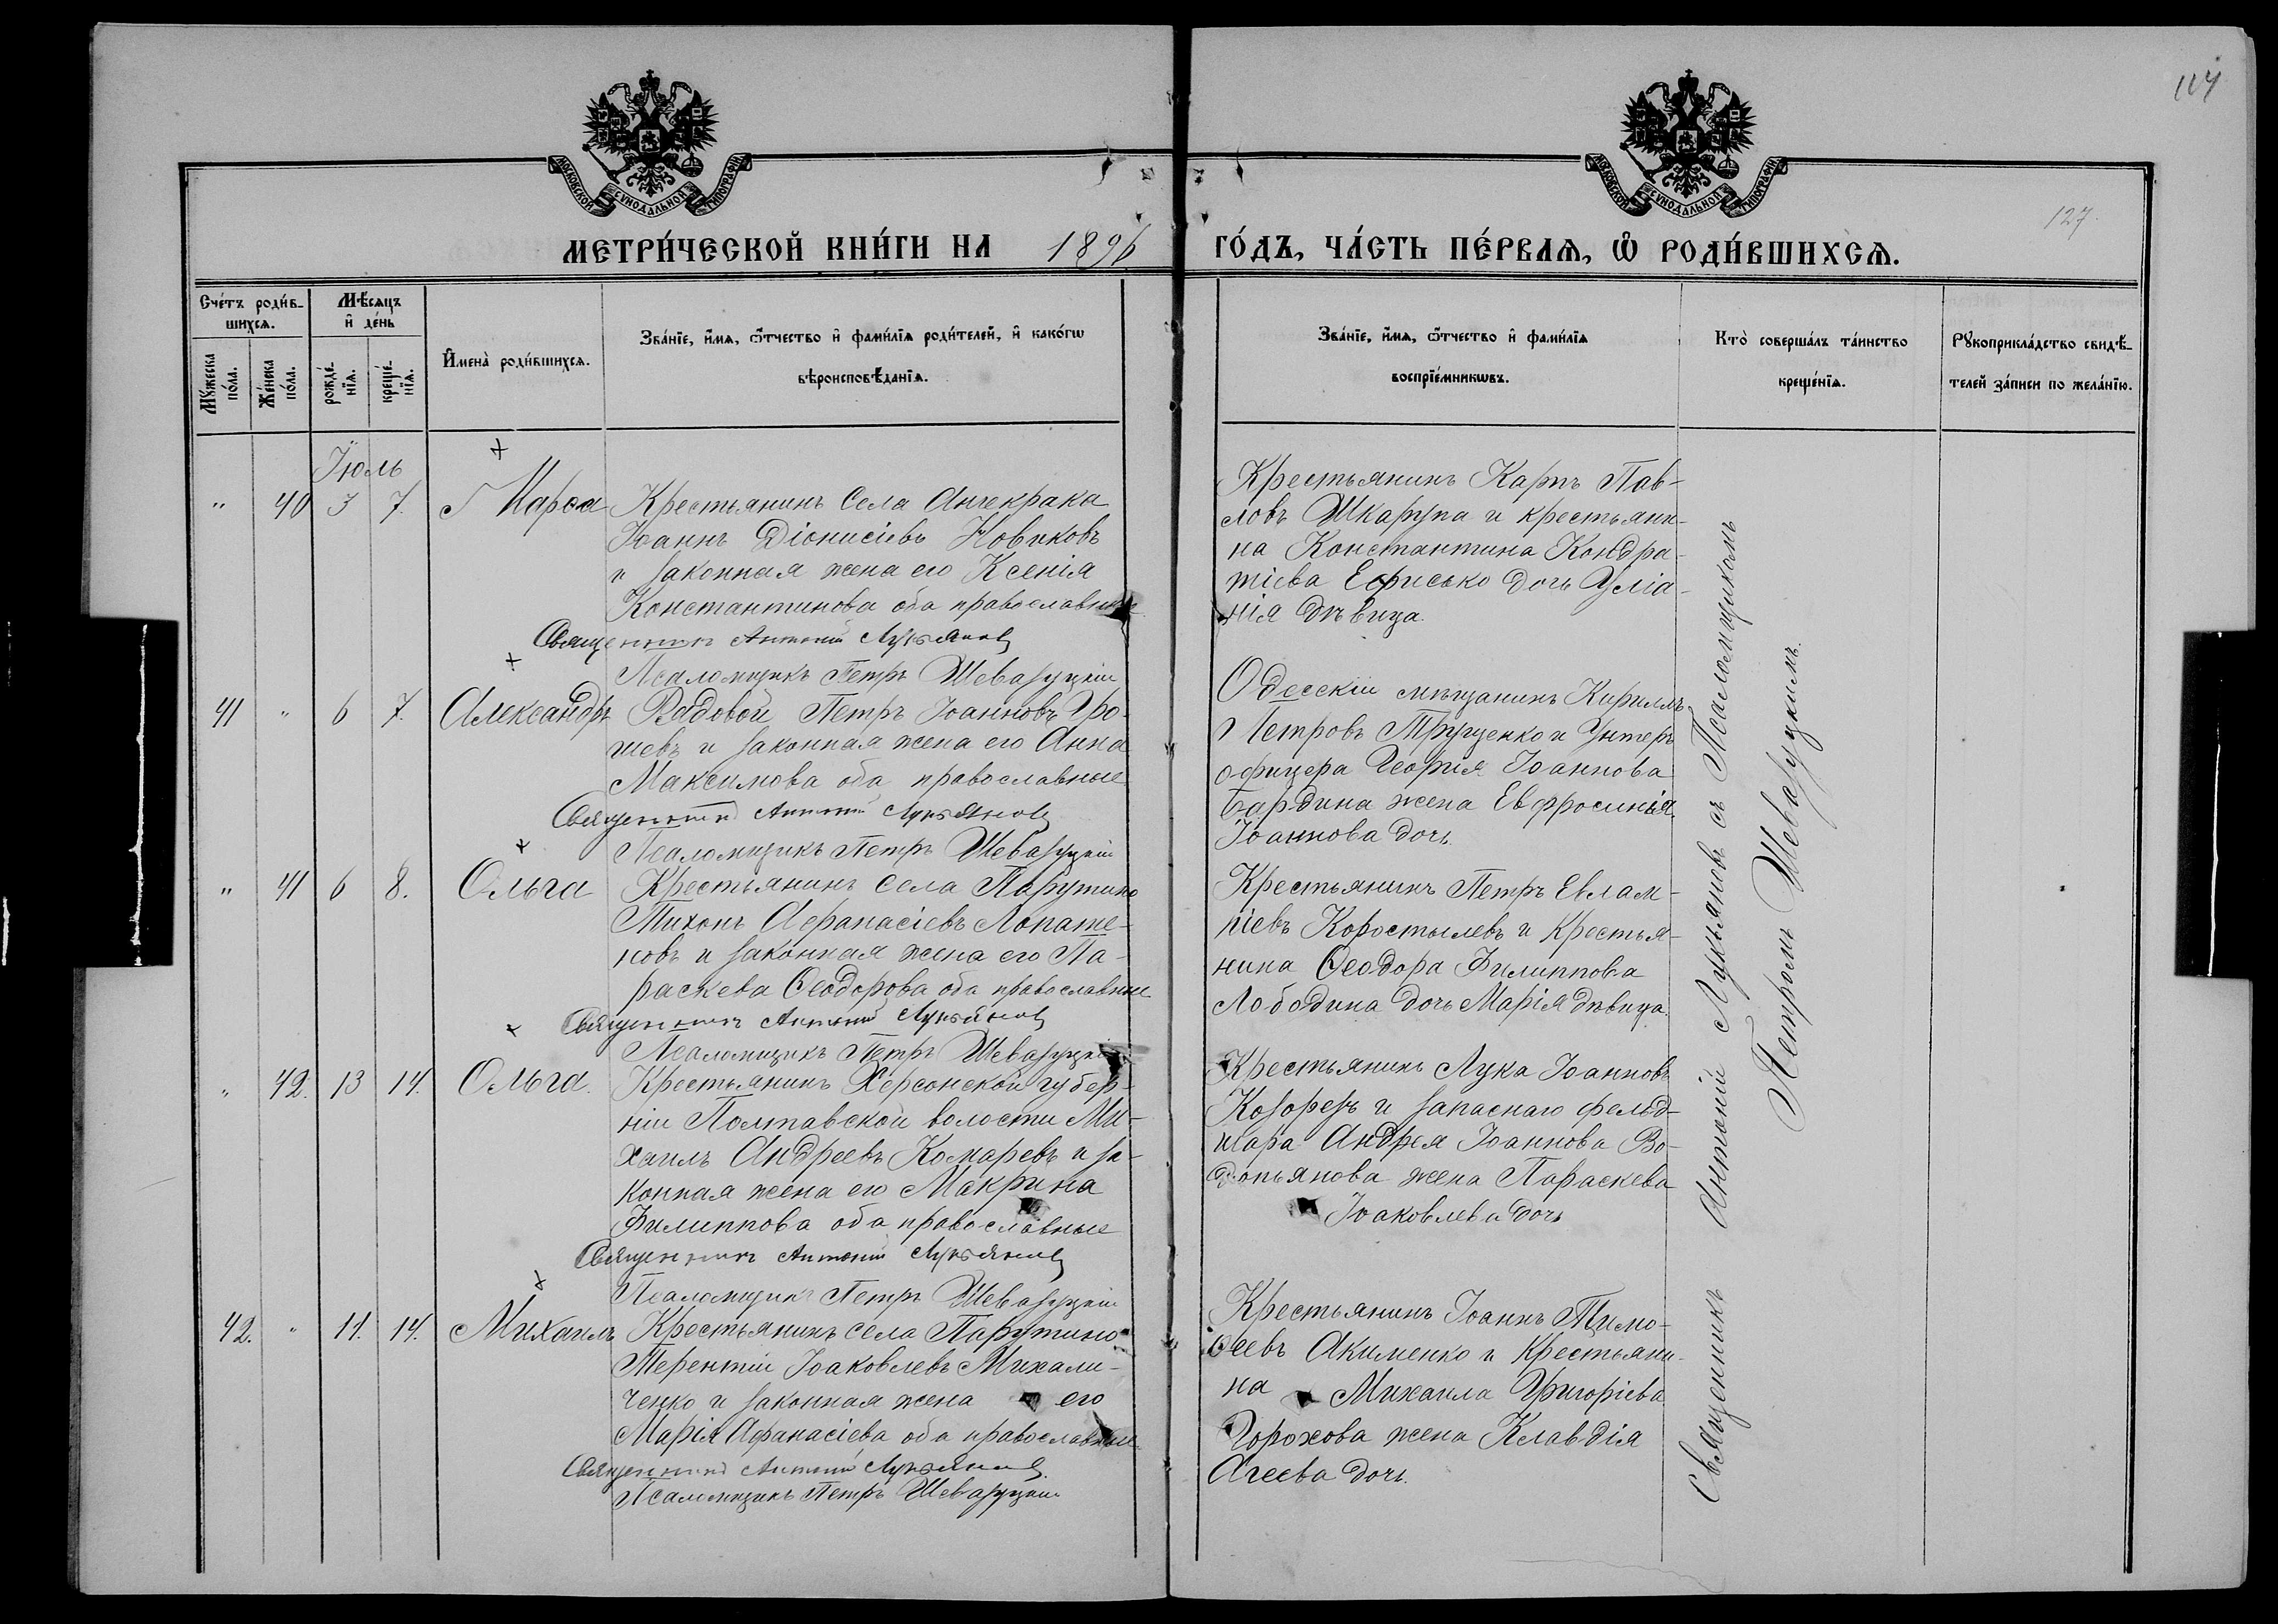 114
127.
МОСКОВСКОЙ СѴНОДАЛЬНОЙ ТИПОГРАФІИ
МОСКОВСКОЙ СѴНОДАЛЬНОЙ ТИПОГРАФІИ
МЕТРИ́ЧЕСКОЙ КНИ́ГИ НА 1896 ГО́ДЪ, ЧА́СТЬ ПЕ́РВАѦ, Ѽ РОДИ́ВШИХСѦ.
Сче́тъ роди́в-
шихсѧ.
Мѣ́сѧцъ
и҆ де́нь
Мꙋ́жеска
по́ла.
Же́нска
по́ла.
рожде́-
нїѧ.
креще́-
нїѧ.
И҆мена̀ роди́вшихсѧ.
Зва́нїе, и҆́мѧ, ѻ҆́тчество и҆ фами́лїѧ роди́телей, и҆ како́гѡ
вѣроисповѣ́данїѧ.
Зва́нїе, и҆́мѧ, ѻ҆́тчество и҆ фами́лїѧ
воспрїе́мникѡвъ.
Кто̀ соверша́лъ та́инство
креще́нїѧ.
Рꙋкоприкла́дство свидѣ́-
телей за́писи по жела́нїю.
Іюль
" 40 3 7. Марѳа Крестьянинъ Села Анчекрака
Іоаннъ Діонисіевъ Новиковъ
и законная жена его Ксенія
Константинова оба православные
Священникъ Антоній Лукьяновъ
Псаломщикъ Петръ Шевазуцкій
Крестьянинъ Карпъ Пав-
ловъ Шкарупа и крестьяни-
на Константина Кондра-
тіева Ефисько дочь Уліа-
нія дѣвица.
41 " 6 7. Александръ Рядовой Петръ Іоанновъ Гро-
шевъ и законная жена его Анна
Максимова оба православные
Священникъ Антоній Лукьяновъ
Псаломщикъ Петръ Шевазуцкій
Одесскій мѣщанинъ Кириллъ
Петровъ Трущенко и Унтеръ
офицера Георгія Іоаннова
Бардина жена Евфросинія
Іоаннова дочь.
" 41 6 8. Ольга Крестьянинъ села Парутино
Тихонъ Афанасіевъ Лопате-
новъ и законная жена его Па-
раскева Ѳеодорова оба православные
Священникъ Антоній Лукьяновъ
Псаломщикъ Петръ Шевазуцкій
Крестьянинъ Петръ Евлам-
піевъ Коростылевъ и Крестья-
нина Ѳеодора Филиппова
Лободина дочь Марія дѣвица.
" 42. 13 14. Ольга. Крестьянинъ Херсонской губер-
ніи Полтавской волости Ми-
хаилъ Андреевъ Комаревъ и за-
конная жена его Макрина
Филиппова оба православные
Священникъ Антоній Лукьяновъ
Псаломщикъ Петръ Шевазуцкій
Крестьянинъ Лука Іоанновъ
Козорезъ и запаснаго фельд-
шара Андрея Іоаннова Во-
допьянова жена Параскева
Іоаковлева дочь
42. " 11. 14. Михаилъ Крестьянинъ села Парутино
Терентій Іоаковлевъ Михали-
ченко и законная жена его
Марія Афанасіева оба православные
Священникъ Антоній Лукьяновъ
Псаломщикъ Петръ Шевазуцкій
Крестьянинъ Іоаннъ Тимо-
ѳеевъ Акименко и Крестьяни-
на Михаила Григоріева
Горохова жена Клавдія
Агеева дочь.
Священникъ Антоній Лукьяновъ съ Псаломщикомъ
Петромъ Шевазуцкимъ.